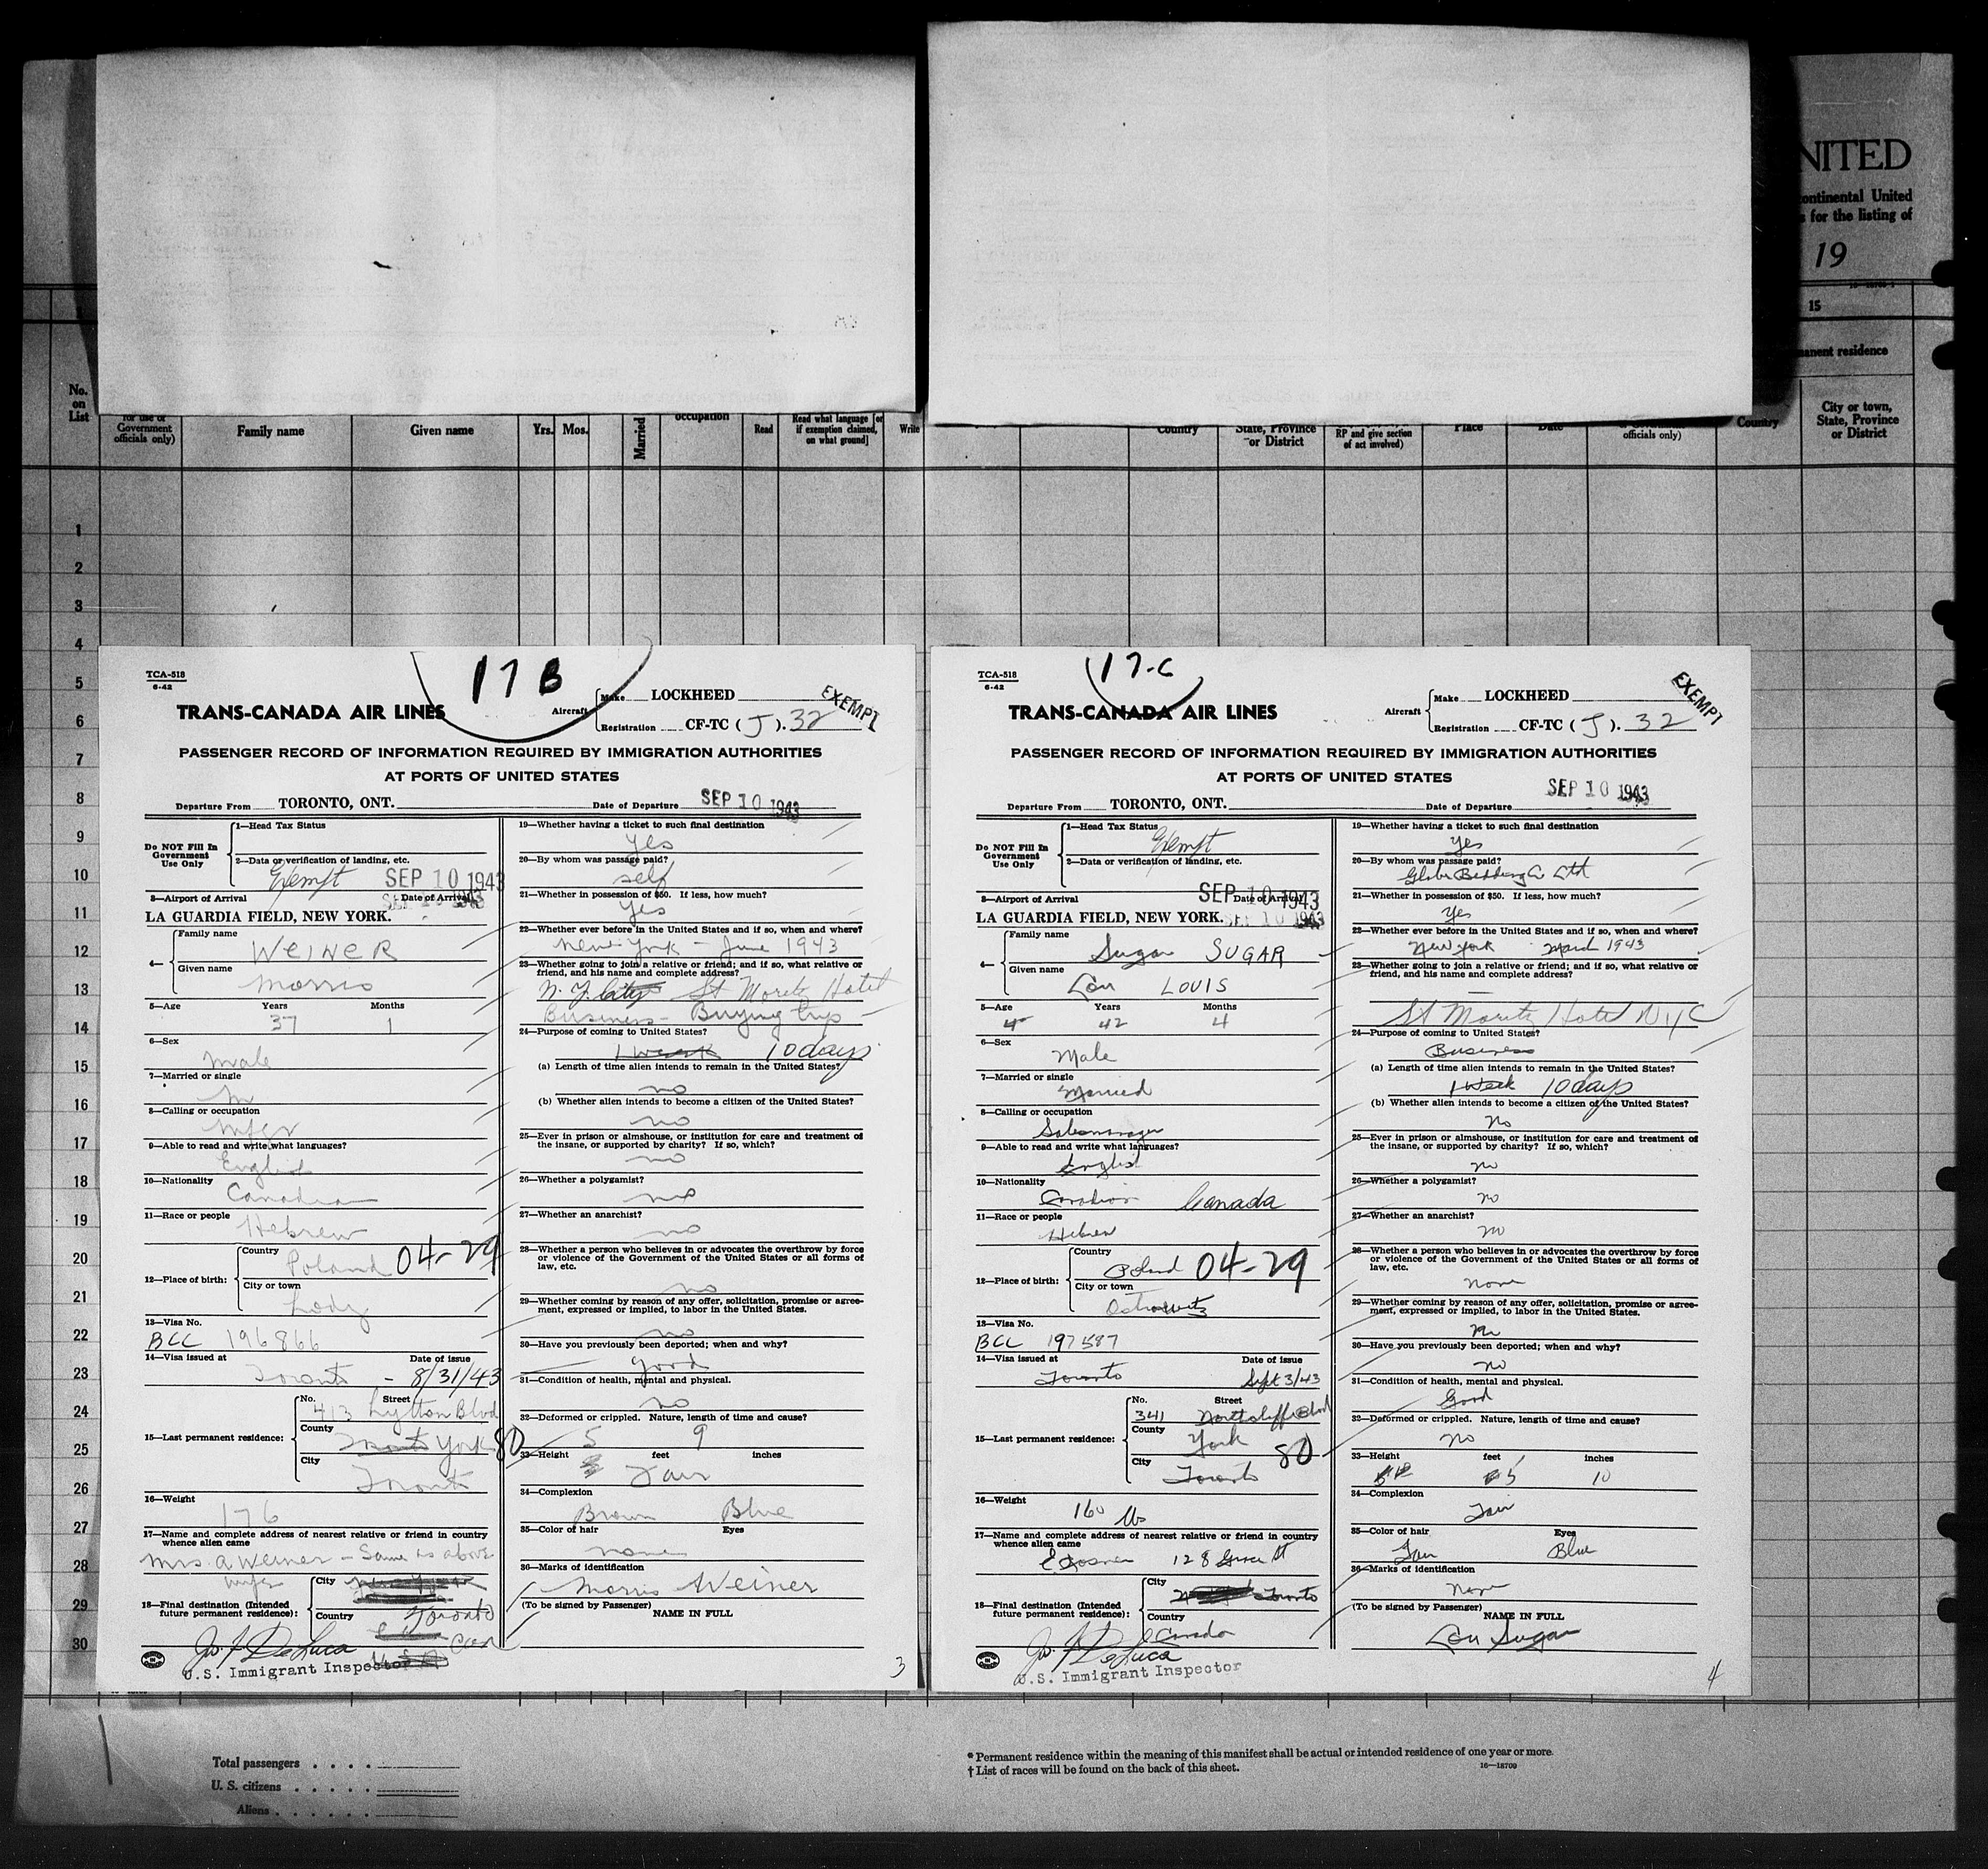 NITED
ontinental United
s for the listing of
19
15
manent residence
No.
on
List
for use of
Government
officials only)
Family name
Given name
Yrs.
Mos.
Married
occupation
Read
Read what language [or
if exemption claimed,
on what ground]
Write
Country
State, Province
or District
RP and give section
of act involved)
Place
Date
officials only)
Country
City or town,
State, Province
or District
1
2
3
4
5
6
7
8
9
10
11
12
13
14
15
16
17
18
19
20
21
22
23
24
25
26
27
28
29
30
TCA-518
6-42
17 B
TRANS-CANADA AIR LINES
Aircraft
Make LOCKHEED
Registration CF-TC (J). 32
EXEMPT
PASSENGER RECORD OF INFORMATION REQUIRED BY IMMIGRATION AUTHORITIES
AT PORTS OF UNITED STATES
Departure From TORONTO, ONT. Date of Departure SEP 10 1943
Do NOT Fill In
Government
Use Only
1—Head Tax Status
2—Data or verification of landing, etc.
Exempt SEP 10 1943
3—Airport of Arrival Date of Arrival
SEP 10 1943
LA GUARDIA FIELD, NEW YORK.
4— Family name
WEINER
Given name
Morris
5—Age Years Months
37 1
6—Sex
Male
7—Married or single
M
8—Calling or occupation
Mfgr
9—Able to read and write what languages?
English
10—Nationality
Canadian
11—Race or people
Hebrew
12—Place of birth:
Country
Poland 04-29
City or town
Lodz
13—Visa No.
BCC 196866
14—Visa issued at Date of issue
Toronto - 8/31/43
15—Last permanent residence:
No. Street
413 Lytton Blvd
County
Toronto York 80
City
Toronto
16—Weight
176
17—Name and complete address of nearest relative or friend in country
whence alien came
Mrs. A Weiner - Same as above
wife
18—Final destination (Intended
future permanent residence):
City
Toronto
Country
Can
Jos. F. DeLuca
U.S. Immigrant Inspector
19—Whether having a ticket to such final destination
Yes
20—By whom was passage paid?
self
21—Whether in possession of $50. If less, how much?
Yes
22—Whether ever before in the United States and if so, when and where?
New York - June 1943
23—Whether going to join a relative or friend; and if so, what relative or
friend, and his name and complete address?
N. Y. City St Moritz Hotel
Business - Buying trip
24—Purpose of coming to United States?
1 week 10 days
(a) Length of time alien intends to remain in the United States?
no
(b) Whether alien intends to become a citizen of the United States?
no
25—Ever in prison or almshouse, or institution for care and treatment of
the insane, or supported by charity? If so, which?
no
26—Whether a polygamist?
no
27—Whether an anarchist?
no
28—Whether a person who believes in or advocates the overthrow by force
or violence of the Government of the United States or all forms of
law, etc.
no
29—Whether coming by reason of any offer, solicitation, promise or agree-
ment, expressed or implied, to labor in the United States.
no
30—Have you previously been deported; when and why?
good
31—Condition of health, mental and physical.
no
32—Deformed or crippled. Nature, length of time and cause?
5 9
33—Height feet inches
Fair
34—Complexion
Brown Blue
35—Color of hair Eyes
none
36—Marks of identification
Morris Weiner
(To be signed by Passenger) NAME IN FULL
3
TCA-518
6-42
17-C
TRANS-CANADA AIR LINES
Aircraft
Make LOCKHEED
Registration CF-TC (J). 32
EXEMPT
PASSENGER RECORD OF INFORMATION REQUIRED BY IMMIGRATION AUTHORITIES
AT PORTS OF UNITED STATES
Departure From TORONTO, ONT. Date of Departure SEP 10 1943
Do NOT Fill In
Government
Use Only
1—Head Tax Status
Exempt
2—Data or verification of landing, etc.
3—Airport of Arrival Date of Arrival
SEP 10 1943
LA GUARDIA FIELD, NEW YORK. SEP 10 1943
4— Family name
Sugar SUGAR
Given name
Lou LOUIS
5—Age Years Months
42 4
6—Sex
Male
7—Married or single
Married
8—Calling or occupation
Salesmanager
9—Able to read and write what languages?
English
10—Nationality
Canadian Canada
11—Race or people
Hebrew
12—Place of birth:
Country
Poland 04-29
City or town
Ostrowitz
13—Visa No.
BCC 197587
14—Visa issued at Date of issue
Toronto Sept 3/43
15—Last permanent residence:
No. Street
341 Northcliffe Blvd
County
York 80
City
Toronto
16—Weight
160 lbs
17—Name and complete address of nearest relative or friend in country
whence alien came
128 Grace St
18—Final destination (Intended
future permanent residence):
City
Toronto
Country
Canada
Jos. F. DeLuca
U.S. Immigrant Inspector
19—Whether having a ticket to such final destination
Yes
20—By whom was passage paid?
Globe Bedding Co Ltd
21—Whether in possession of $50. If less, how much?
Yes
22—Whether ever before in the United States and if so, when and where?
New York March 1943
23—Whether going to join a relative or friend; and if so, what relative or
friend, and his name and complete address?
St Moritz Hotel NYC
24—Purpose of coming to United States?
Business
(a) Length of time alien intends to remain in the United States?
1 Week 10 days
(b) Whether alien intends to become a citizen of the United States?
No
25—Ever in prison or almshouse, or institution for care and treatment of
the insane, or supported by charity? If so, which?
no
26—Whether a polygamist?
no
27—Whether an anarchist?
no
28—Whether a person who believes in or advocates the overthrow by force
or violence of the Government of the United States or all forms of
law, etc.
none
29—Whether coming by reason of any offer, solicitation, promise or agree-
ment, expressed or implied, to labor in the United States.
no
30—Have you previously been deported; when and why?
no
31—Condition of health, mental and physical.
Good
32—Deformed or crippled. Nature, length of time and cause?
no
33—Height feet inches
5 10
34—Complexion
Fair
35—Color of hair Eyes
Fair Blue
36—Marks of identification
None
(To be signed by Passenger) NAME IN FULL
Lou Sugar
4
Total passengers
U. S. citizens
Aliens
* Permanent residence within the meaning of this manifest shall be actual or intended residence of one year or more.
† List of races will be found on the back of this sheet.
16—18709